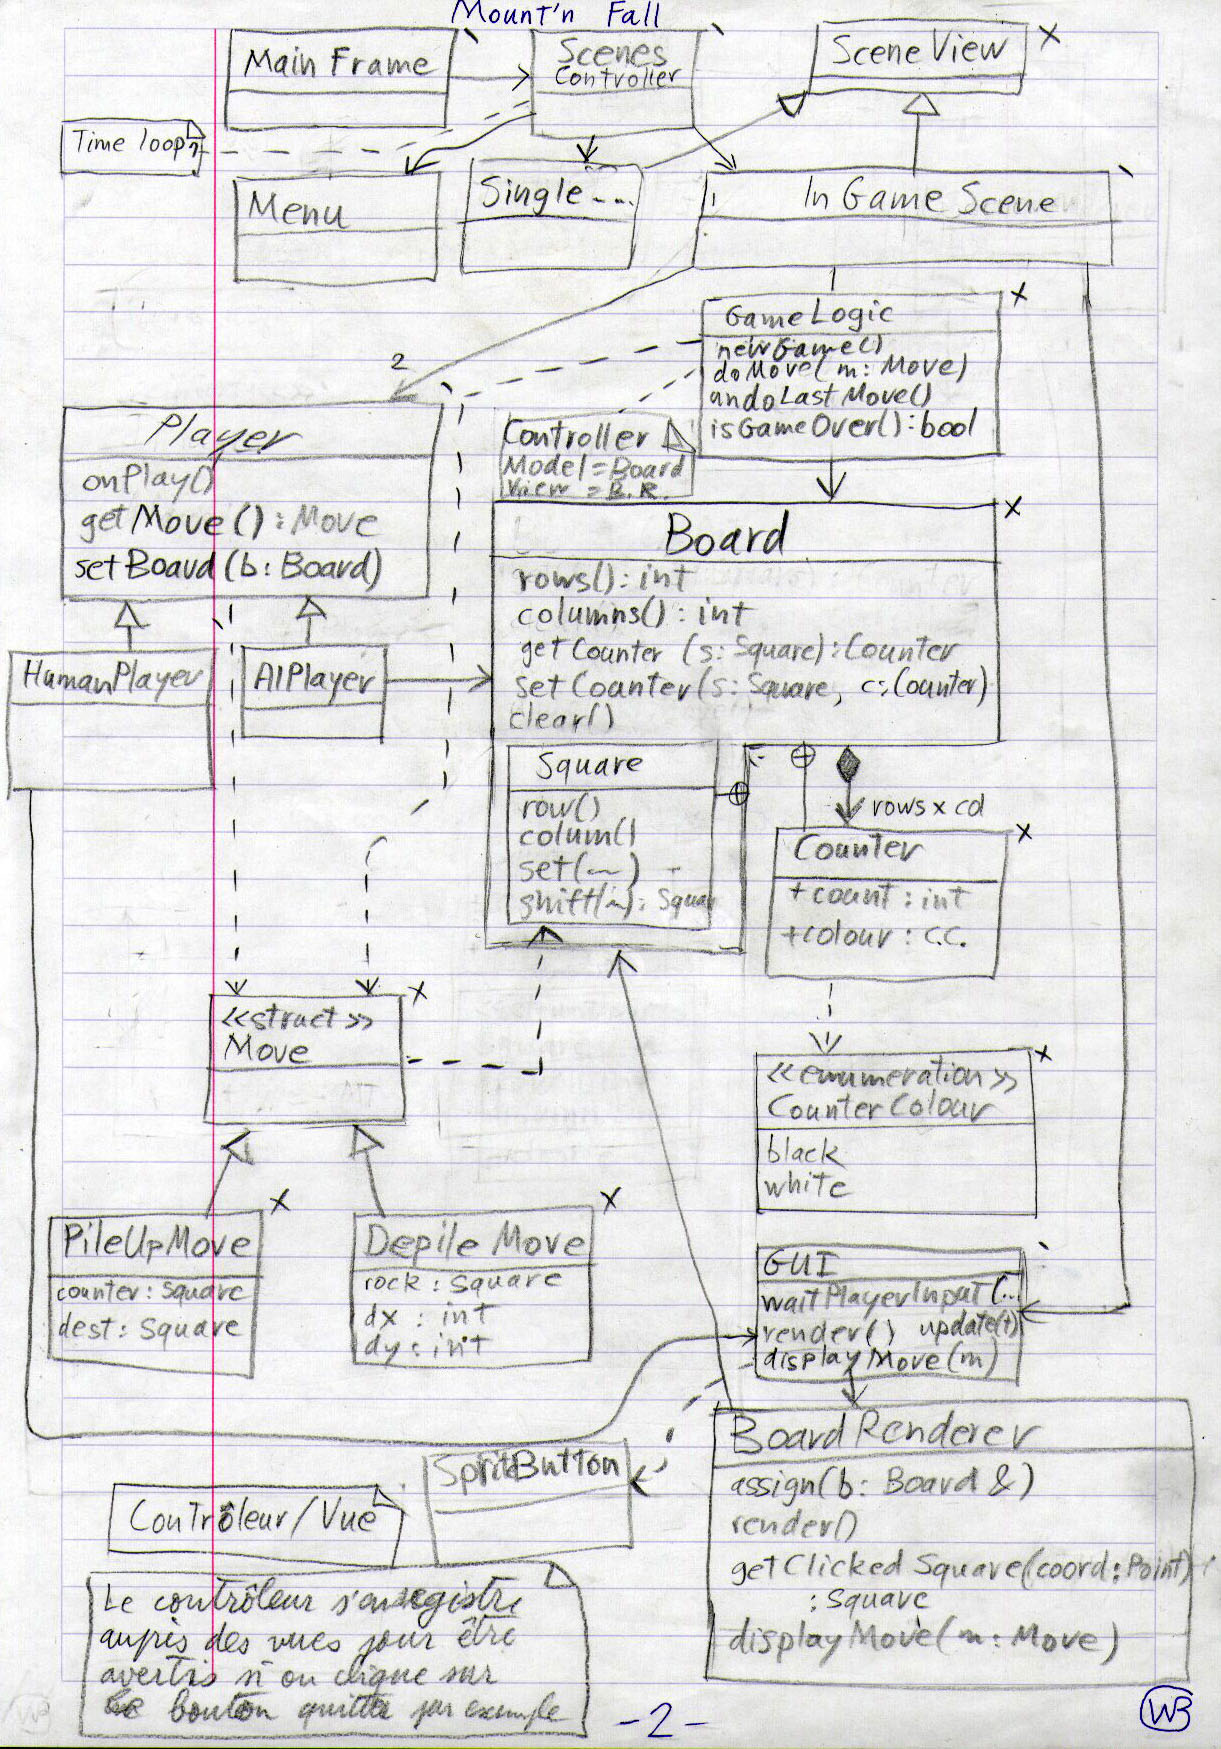 Mount'n Fall
Main Frame
Scenes
Controller
SceneView
x
Time loop
Menu
Single...
In Game Scene
GameLogic
x
newGame()
doMove(m: Move)
undoLastMove()
isGameOver(): bool
2
Controller
Model = Board
View = B.R.
Player
onPlay()
getMove(): Move
setBoard(b: Board)
Board
x
rows(): int
columns(): int
getCounter (s: Square): Counter
setCounter(s: Square, c: Counter)
clear()
HumanPlayer
AIPlayer
Square
row()
column()
set(...)
shift(...): Squar
rows x col
Counter
x
+count: int
+colour: C.C.
<<struct>>
Move
x
<<enumeration>>
CounterColour
x
black
white
PileUpMove
x
counter: Square
dest: Square
Depile Move
x
rock: Square
dx : int
dy : int
GUI
waitPlayerInput(...
render() update(t)
displayMove(m)
SpriteButton
BoardRenderer
assign(b: Board &)
render()
getClicked Square(coord: Point)
: Square
displayMove(m: Move)
Contrôleur/Vue
Le contrôleur s'enregistre
auprès des vues pour être
avertis si on clique sur
le bouton quitter par exemple
-2-
WB